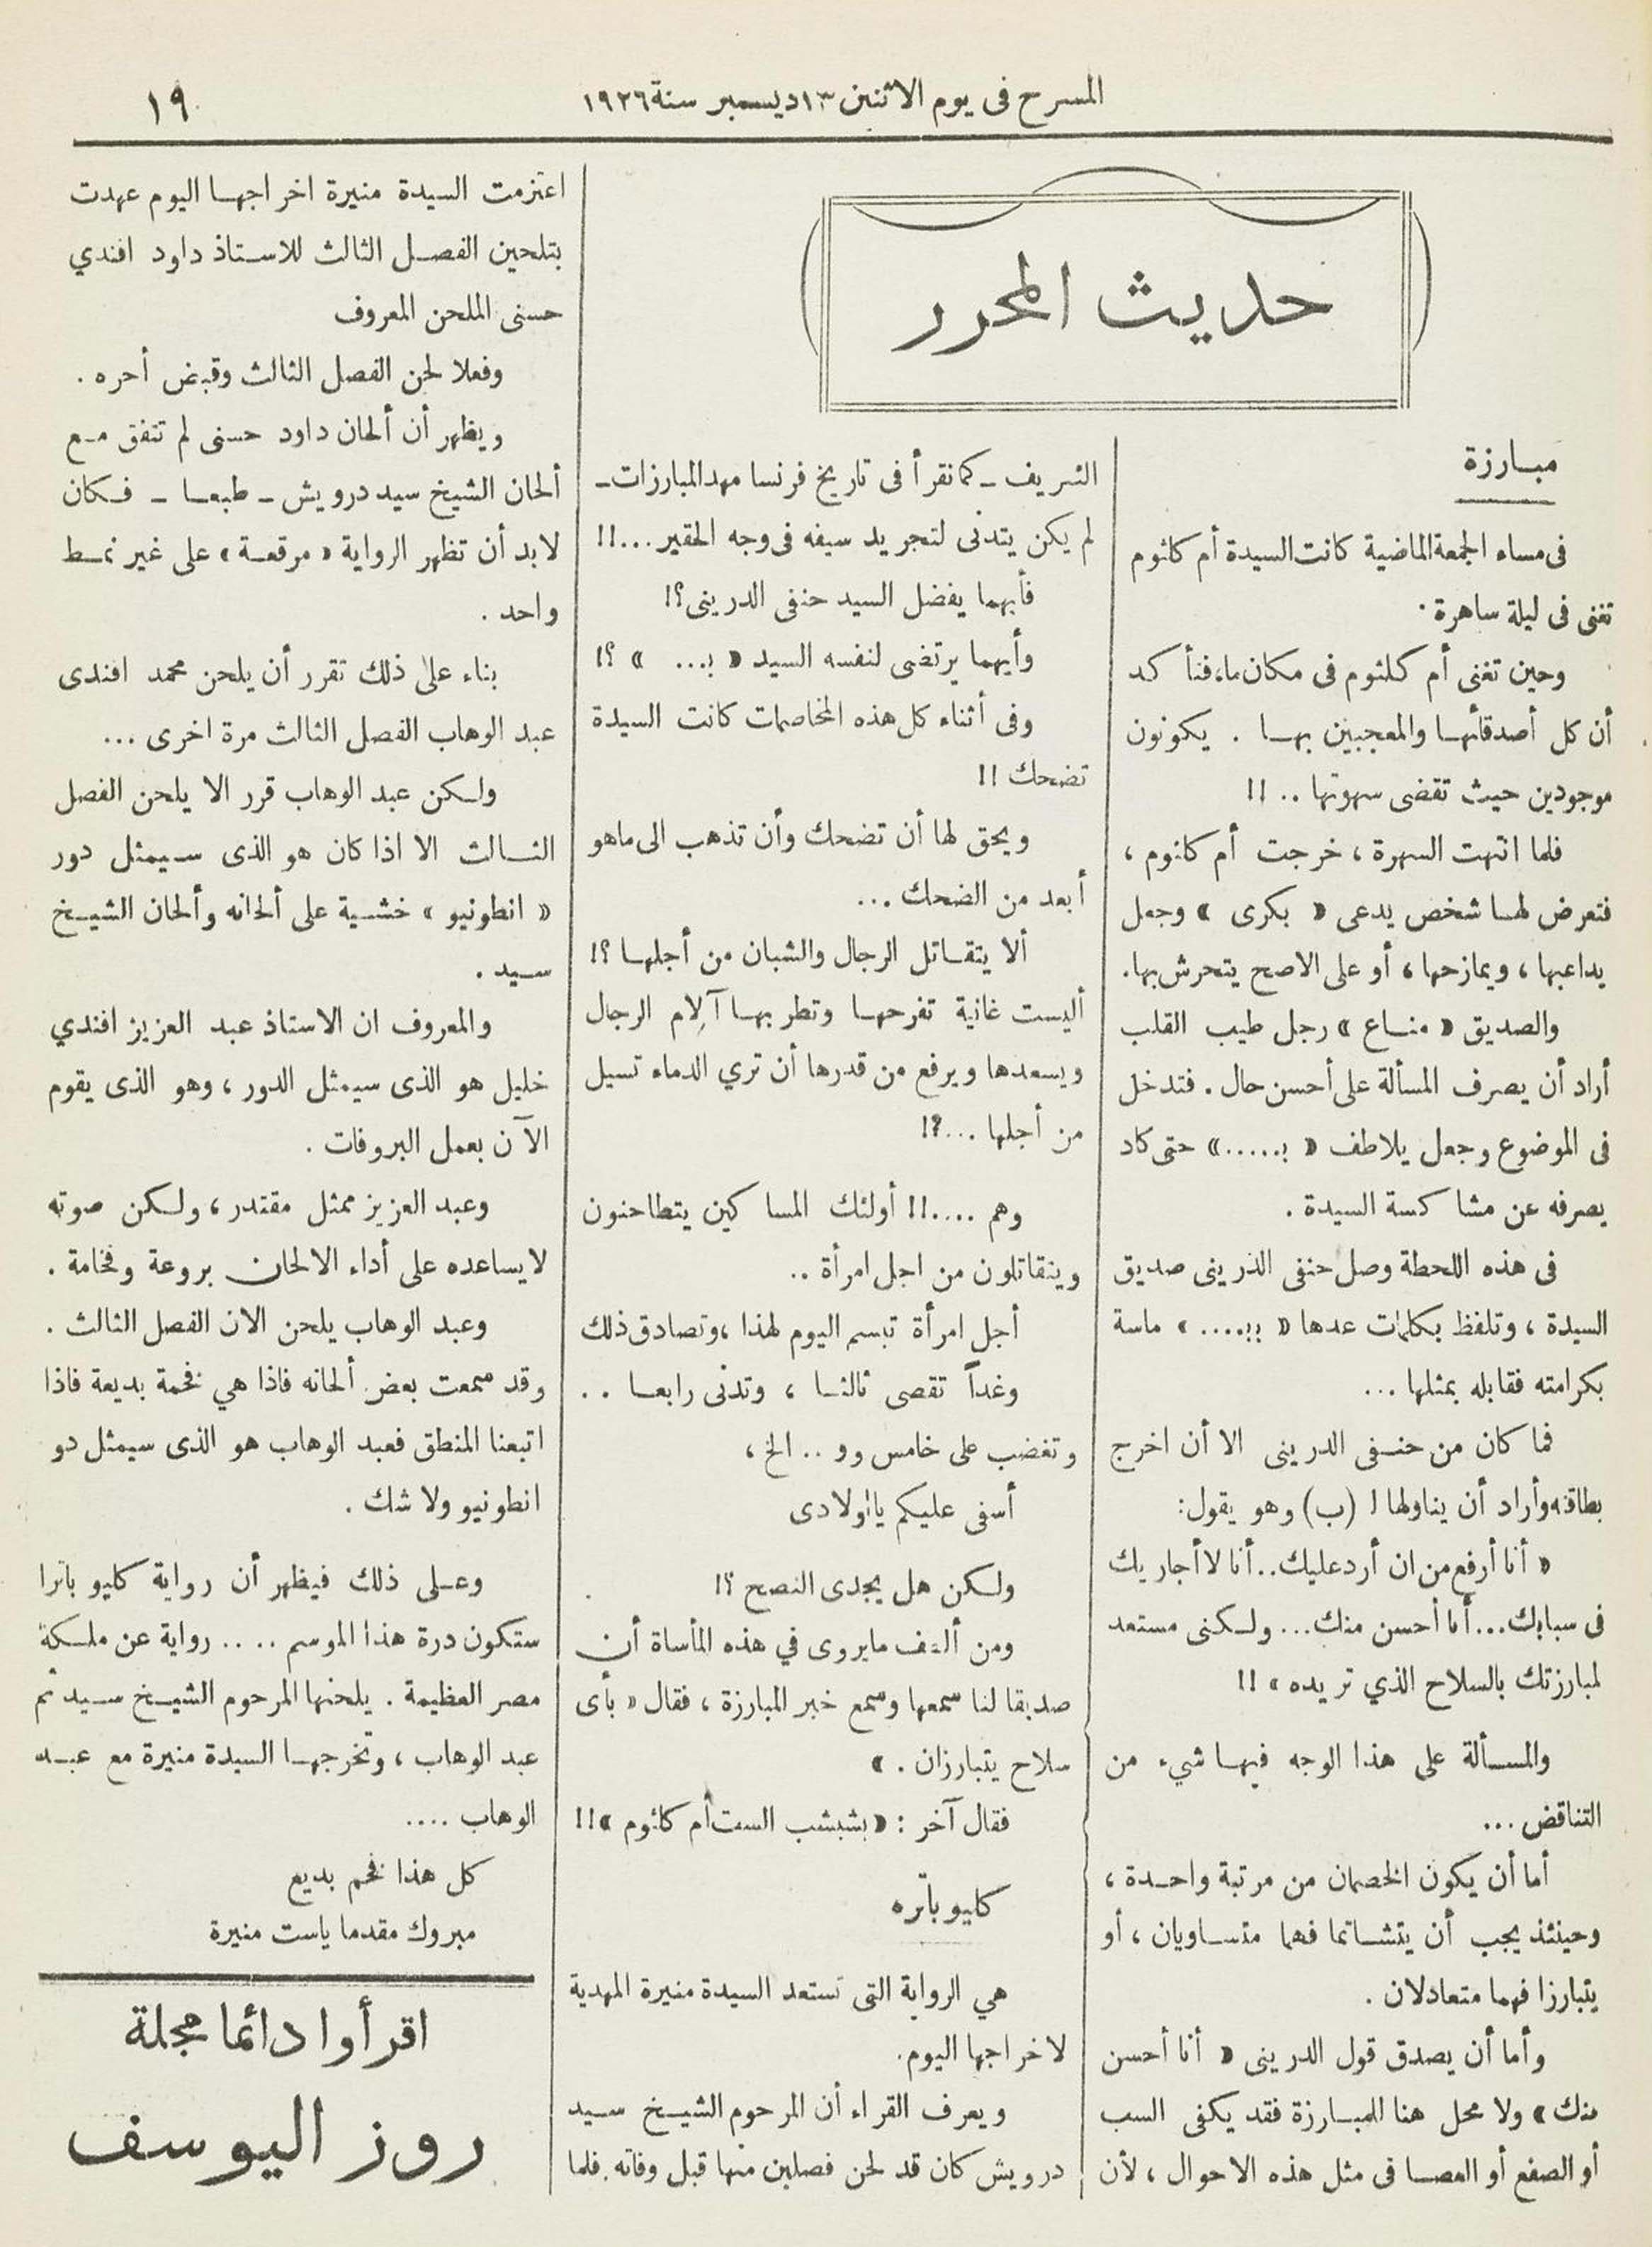 المسرح فى يوم الاثنين ١٣ ديسمبر سنة ١٩٢٦
١٩
حديث المحرر
مبارزة
فى مساء الجمعة الماضية كانت السيدة أم كلثوم
تغنى فى ليلة ساهرة .
وحين تغنى أم كلثوم فى مكان ما، فتأكد
أن كل أصدقائها والمعجبين بها . يكونون
موجودين حيث تقضى سهرتها .. !!
فلما انتهت السهرة ، خرجت أم كلثوم ،
فتعرض لها شخص يدعى « بكرى » وجعل
يداعبها ، ويمازحها ، أو على الاصح يتحرش بها .
والصديق « مناع » رجل طيب القلب
أراد أن يصرف المسألة على أحسن حال . فتدخل
فى الموضوع وجعل يلاطف « بـ.....» حتى كاد
يصرفه عن مشاكسة السيدة .
فى هذه اللحظة وصل حنفى الدرينى صديق
السيدة ، وتلفظ بكلمات عدها « بـ.... » ماسة
بكرامته فقابله بمثلها ...
فما كان من حنفى الدرينى الا أن اخرج
بطاقته وأراد أن يناولها لـ (ب) وهو يقول:
« أنا أرفع من ان أرد عليك .. أنا لا أجاريك
فى سبابك ... أنا أحسن منك ... ولكنى مستعد
لمبارزتك بالسلاح الذي تريده » !!
والمسألة على هذا الوجه فيها شيء من
التناقض ...
أما أن يكون الخصمان من مرتبة واحدة ،
وحينئذ يجب أن يتشاتما فهما متساويان ، أو
يتبارزا فهما متعادلان .
وأما أن يصدق قول الدرينى « أنا أحسن
منك » ولا محل هنا للمبارزة فقد يكفى السب
أو الصفع أو العصا فى مثل هذه الاحوال ، لأن
الشريف - كما نقرأ فى تاريخ فرنسا مهد المبارزات -
لم يكن يتدنى لتجريد سيفه فى وجه الحقير ...!!
فأيهما يفضل السيد حنفى الدرينى ؟!
وأيهما يرتضى لنفسه السيد « بـ... » ؟!
وفى أثناء كل هذه المخاصمات كانت السيدة
تضحك !!
ويحق لها أن تضحك وأن تذهب الى ماهو
أبعد من الضحك ...
ألا يتقاتل الرجال والشبان من أجلها ؟!
أليست غانية تفرحها وتطربها آلام الرجال
ويسعدها ويرفع من قدرها أن تري الدماء تسيل
من أجلها ...؟!
وهم ....!! أولئك المساكين يتطاحنون
ويتقاتلون من اجل امرأة ..
أجل امرأة تبسم اليوم لهذا ، وتصادق ذلك
وغداً تقصى ثالثا ، وتدنى رابعا ..
وتغضب على خامس وو .. الخ ،
أسفى عليكم يا اولادى
ولكن هل يجدى النصح ؟!
ومن ألطف مايروى في هذه المأساة أن
صديقا لنا سمعها وسمع خبر المبارزة ، فقال « بأى
سلاح يتبارزان . »
فقال آخر : « بشبشب الست أم كلثوم » !!
كليو باتره
هي الرواية التى تستعد السيدة منيرة المهدية
لاخراجها اليوم .
ويعرف القراء أن المرحوم الشيخ سيد
درويش كان قد لحن فصلين منها قبل وفاته . فلما
اعتزمت السيدة منيرة اخراجها اليوم عهدت
بتلحين الفصل الثالث للاستاذ داود افندي
حسنى الملحن المعروف
وفعلا لحن الفصل الثالث وقبض أجره .
ويظهر أن ألحان داود حسنى لم تتفق مع
ألحان الشيخ سيد درويش - طبعا - فكان
لابد أن تظهر الرواية « مرقعة » على غير نمط
واحد .
بناء على ذلك تقرر أن يلحن محمد افندى
عبد الوهاب الفصل الثالث مرة اخرى ...
ولكن عبد الوهاب قرر الا يلحن الفصل
الثالث الا اذا كان هو الذى سيمثل دور
« انطونيو » خشية على ألحانه وألحان الشيخ
سيد .
والمعروف ان الاستاذ عبد العزيز افندي
خليل هو الذى سيمثل الدور ، وهو الذى يقوم
الآن بعمل البروفات .
وعبد العزيز ممثل مقتدر ، ولكن صوته
لايساعده على أداء الالحان بروعة وفخامة .
وعبد الوهاب يلحن الان الفصل الثالث .
وقد سمعت بعض ألحانه فاذا هي فخمة بديعة فاذا
اتبعنا المنطق فعبد الوهاب هو الذى سيمثل دو
انطونيو ولا شك .
وعلى ذلك فيظهر أن رواية كليو باترا
ستكون درة هذا الموسم .... رواية عن ملكة
مصر العظيمة . يلحنها المرحوم الشيخ سيد ثم
عبد الوهاب ، وتخرجها السيدة منيرة مع عبد
الوهاب ....
كل هذا فخم بديع
مبروك مقدما ياست منيرة
اقرأوا دائما مجلة
روز اليوسف